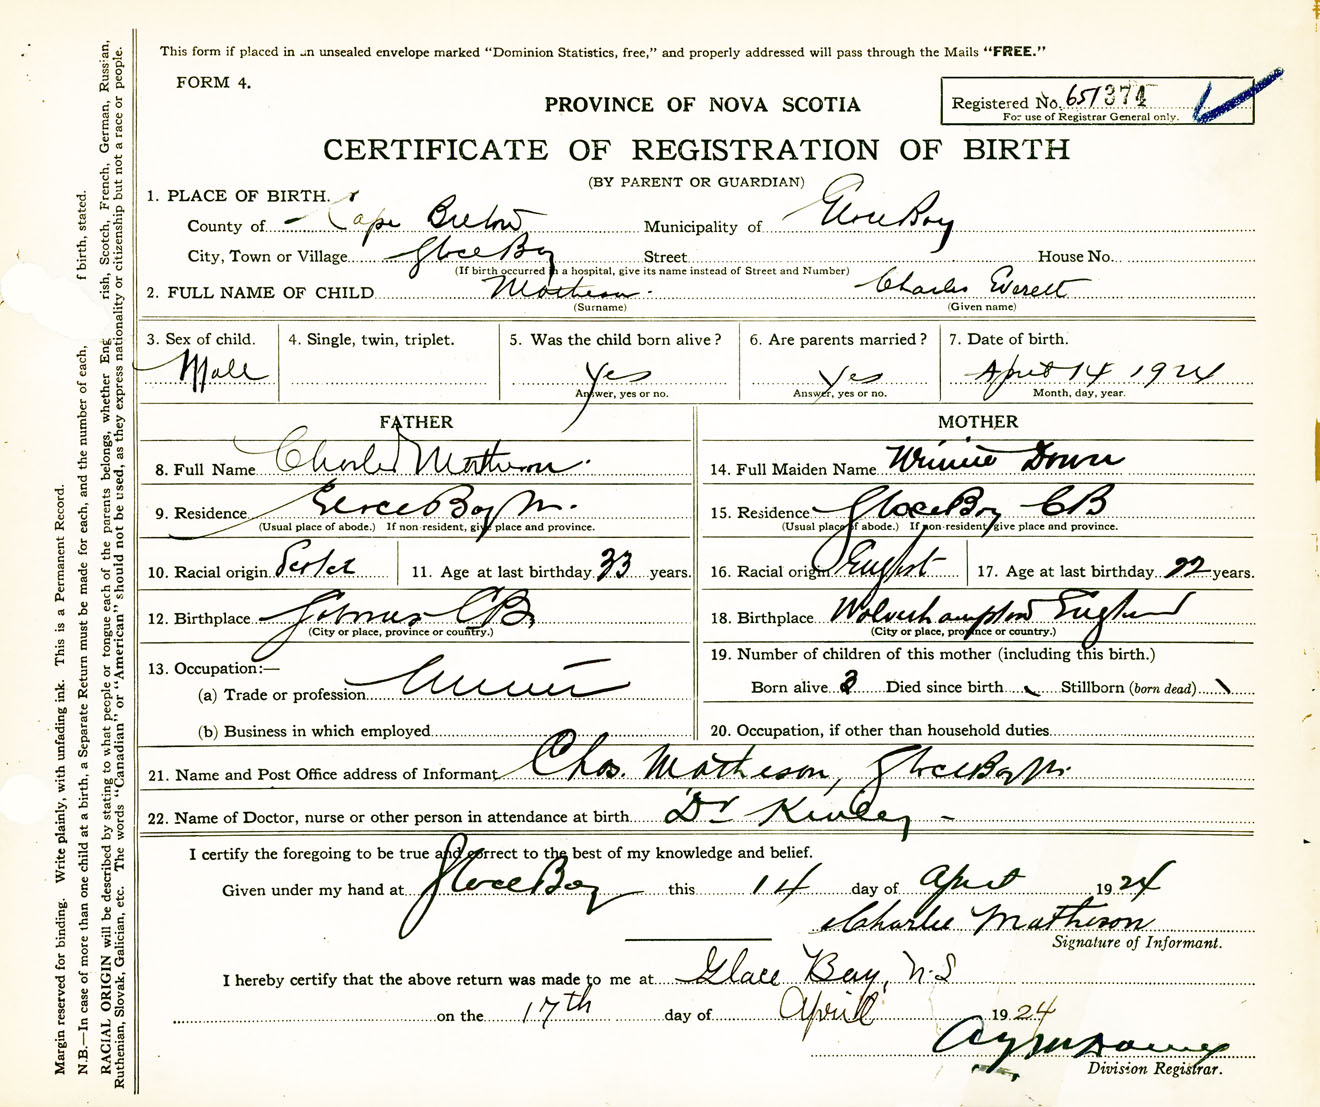 This form if placed in an unsealed envelope marked "Dominion Statistics, free," and properly addressed will pass through the Mails "FREE."
FORM 4.
PROVINCE OF NOVA SCOTIA
Registered No. 651374
For use of Registrar General only.
CERTIFICATE OF REGISTRATION OF BIRTH
(BY PARENT OR GUARDIAN)
1. PLACE OF BIRTH.
County of Cape Breton Municipality of Glace Bay
City, Town or Village Glace Bay Street House No.
(If birth occurred in a hospital, give its name instead of Street and Number)
2. FULL NAME OF CHILD Matheson Charles Everett
(Surname) (Given name)
3. Sex of child. 4. Single, twin, triplet. 5. Was the child born alive? 6. Are parents married? 7. Date of birth.
Male Yes Yes April 14 1924
Answer, yes or no. Answer, yes or no. Month, day, year.
FATHER MOTHER
8. Full Name Charles Matheson 14. Full Maiden Name Winnie Down
9. Residence Glace Bay 15. Residence Glace Bay CB
(Usual place of abode.) If non-resident, give place and province. (Usual place of abode.) If non-resident, give place and province.
10. Racial origin Scotch 11. Age at last birthday 33 years. 16. Racial origin English 17. Age at last birthday 22 years.
12. Birthplace CB 18. Birthplace Wolverhampton England
(City or place, province or country.) (City or place, province or country.)
13. Occupation:— 19. Number of children of this mother (including this birth.)
(a) Trade or profession Born alive 3 Died since birth Stillborn (born dead)
(b) Business in which employed 20. Occupation, if other than household duties
21. Name and Post Office address of Informant Chas. Matheson, Glace Bay
22. Name of Doctor, nurse or other person in attendance at birth Dr Kinley -
I certify the foregoing to be true and correct to the best of my knowledge and belief.
Given under my hand at Glace Bay this 14 day of April 1924
Charlie Matheson
Signature of Informant.
I hereby certify that the above return was made to me at Glace Bay, N.S
on the 17th day of April 1924
Division Registrar.
Margin reserved for binding. Write plainly, with unfading ink. This is a Permanent Record.
N.B.—In case of more than one child at a birth, a Separate Return must be made for each, and the number of each, f birth, stated.
RACIAL ORIGIN will be described by stating to what people or tongue each of the parents belongs, whether Eng rish, Scotch, French, German, Russian,
Ruthenian, Slovak, Galician, etc. The words "Canadian" or "American" should not be used, as they express nationality or citizenship but not a race or people.